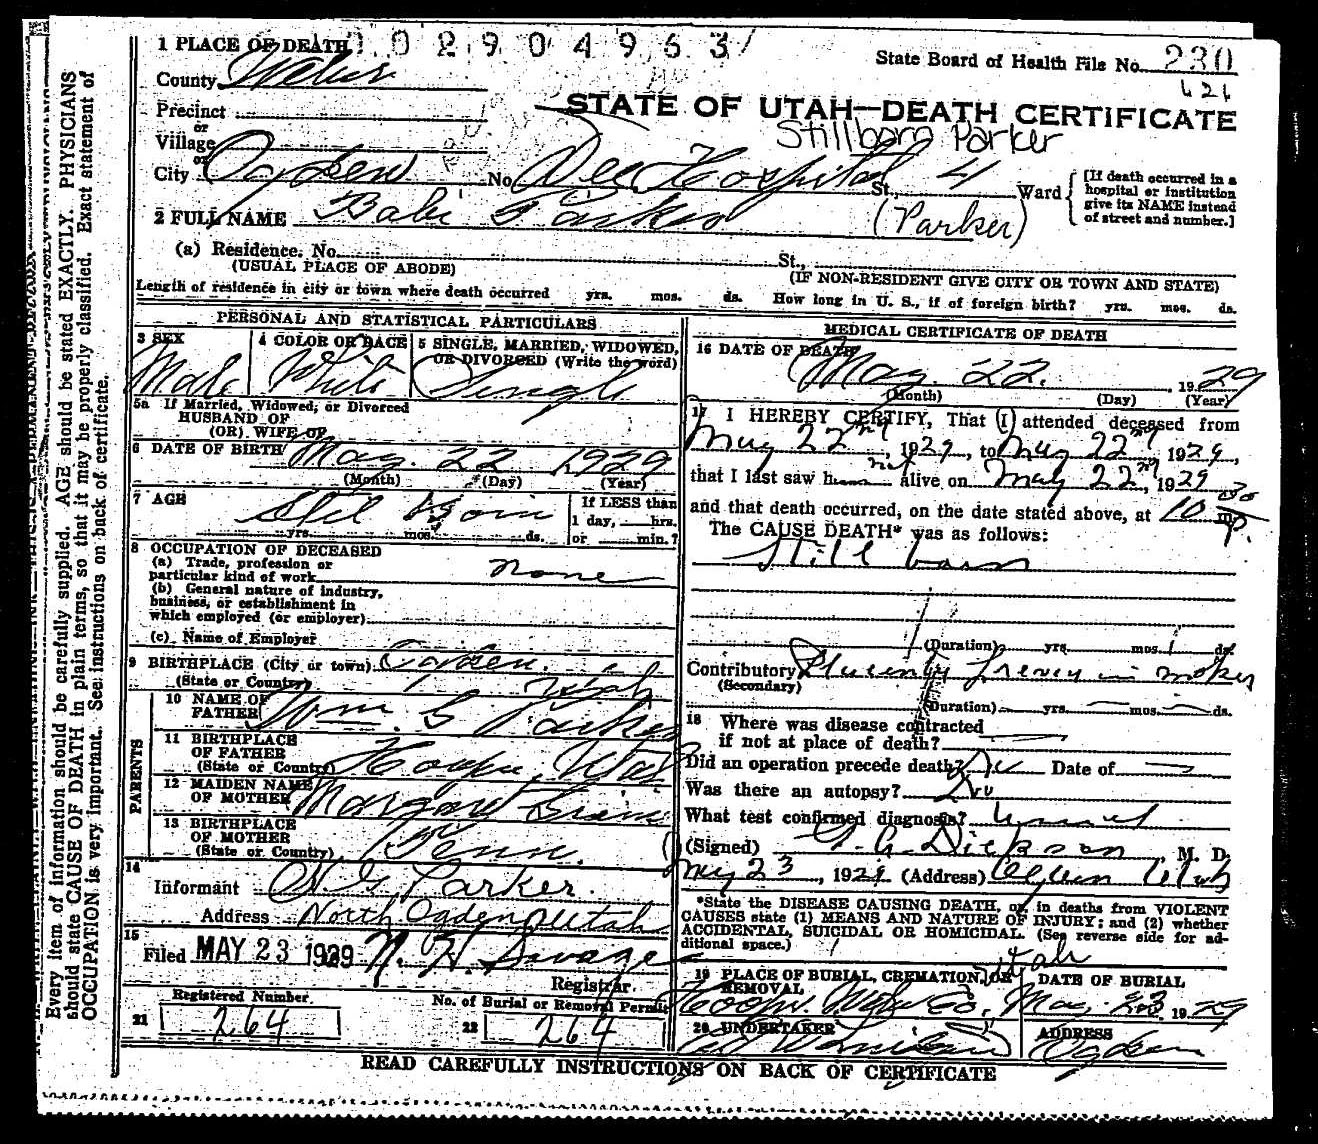 1 PLACE OF DEATH 1029049 63
State Board of Health File No. 230
County Weber
621
Precinct
STATE OF UTAH—DEATH CERTIFICATE
or
Stillborn Parker
Village
or
City Ogden No. Dee Hospital St., 4 Ward
[If death occurred in a hospital or institution give its NAME instead of street and number.]
2 FULL NAME Babe Parker (Parker)
(a) Residence. No. St.,
(USUAL PLACE OF ABODE) (IF NON-RESIDENT GIVE CITY OR TOWN AND STATE)
Length of residence in city or town where death occurred yrs. mos. ds. How long in U. S., if of foreign birth? yrs. mos. ds.
PERSONAL AND STATISTICAL PARTICULARS
3 SEX 4 COLOR OR RACE 5 SINGLE, MARRIED, WIDOWED, OR DIVORCED (Write the word)
Male White Single
5a If Married, Widowed, or Divorced
HUSBAND OF
(OR) WIFE OF
6 DATE OF BIRTH May 22 1929
(Month) (Day) (Year)
7 AGE Stil Born
yrs. mos. ds.
If LESS than
1 day, hrs.
or min.?
8 OCCUPATION OF DECEASED
(a) Trade, profession or
particular kind of work none
(b) General nature of industry,
business, or establishment in
which employed (or employer)
(c) Name of Employer
9 BIRTHPLACE (City or town) Ogden.
(State or Country) Utah
PARENTS
10 NAME OF FATHER Wm. G Parker
11 BIRTHPLACE OF FATHER (State or Country) Hooper, Utah
12 MAIDEN NAME OF MOTHER Margaret
13 BIRTHPLACE OF MOTHER (State or Country) Tenn.
14
Informant W. G. Parker.
Address North Ogden Utah
15
Filed MAY 23 1929 N. H. Savage
Registrar.
Registered Number. No. of Burial or Removal Permit
21 264 22 264
MEDICAL CERTIFICATE OF DEATH
16 DATE OF DEATH
May 22. 1929
(Month) (Day) (Year)
17 I HEREBY CERTIFY, That (I) attended deceased from
May 22nd, 1929, to May 22nd, 1929,
that I last saw h alive on May 22nd, 1929
and that death occurred, on the date stated above, at 10 30 p.m.
The CAUSE DEATH* was as follows:
Still born
(Duration) yrs. mos. ds.
Contributory in mother
(Secondary)
(Duration) yrs. mos. ds.
18 Where was disease contracted
if not at place of death?
Did an operation precede death? No Date of
Was there an autopsy? No
What test confirmed diagnosis?
(Signed) Dickson, M. D.
May 23, 1929 (Address) Ogden Utah
*State the DISEASE CAUSING DEATH, or, in deaths from VIOLENT
CAUSES state (1) MEANS AND NATURE OF INJURY; and (2) whether
ACCIDENTAL, SUICIDAL OR HOMICIDAL. (See reverse side for ad-
ditional space.)
19 PLACE OF BURIAL, CREMATION, OR REMOVAL DATE OF BURIAL
Hooper. Weber Co. Utah May. 23 1929
20 UNDERTAKER ADDRESS
Ogden
READ CAREFULLY INSTRUCTIONS ON BACK OF CERTIFICATE
Every item of information should be carefully supplied. AGE should be stated EXACTLY. PHYSICIANS
should state CAUSE OF DEATH in plain terms, so that it may be properly classified. Exact statement of
OCCUPATION is very important. See instructions on back of certificate.